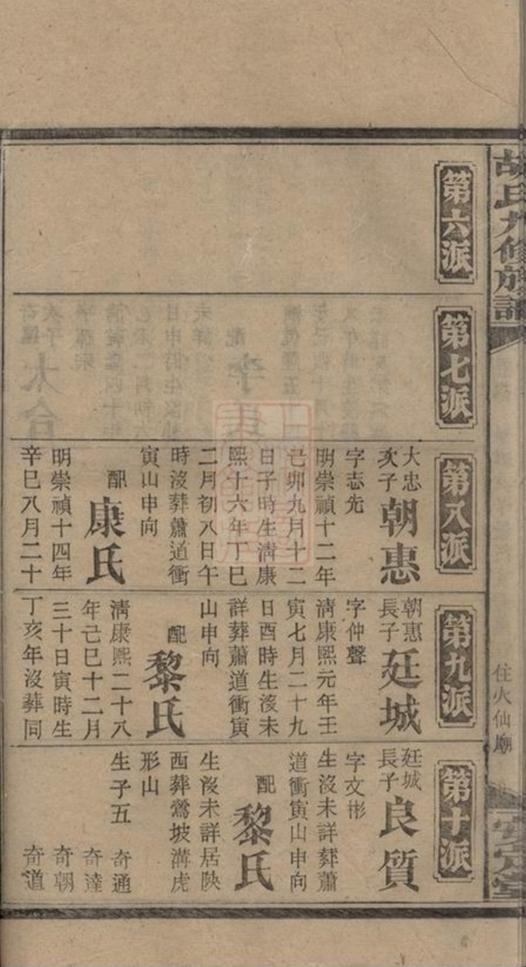 胡氏九修族譜
住火仙廟
安定堂
第六派
第七派
第八派
大忠
次子
朝惠
字志先
明崇禎十二年
己卯九月十二
日子時生清康
熙十六年丁巳
二月初八日午
時沒葬蕭道衝
寅山申向
配
康氏
明崇禎十四年
辛巳八月二十
第九派
朝惠
長子
廷城
字仲聲
清康熙元年壬
寅七月二十九
日酉時生沒未
詳葬蕭道衝寅
山申向
配
黎氏
清康熙二十八
年己巳十二月
三十日寅時生
丁亥年沒葬同
第十派
廷城
長子
良質
字文彬
生沒未詳葬蕭
道衝寅山申向
配
黎氏
生沒未詳居陝
西葬鶯坡溝虎
形山
生子五 奇通
奇達
奇朝
奇道